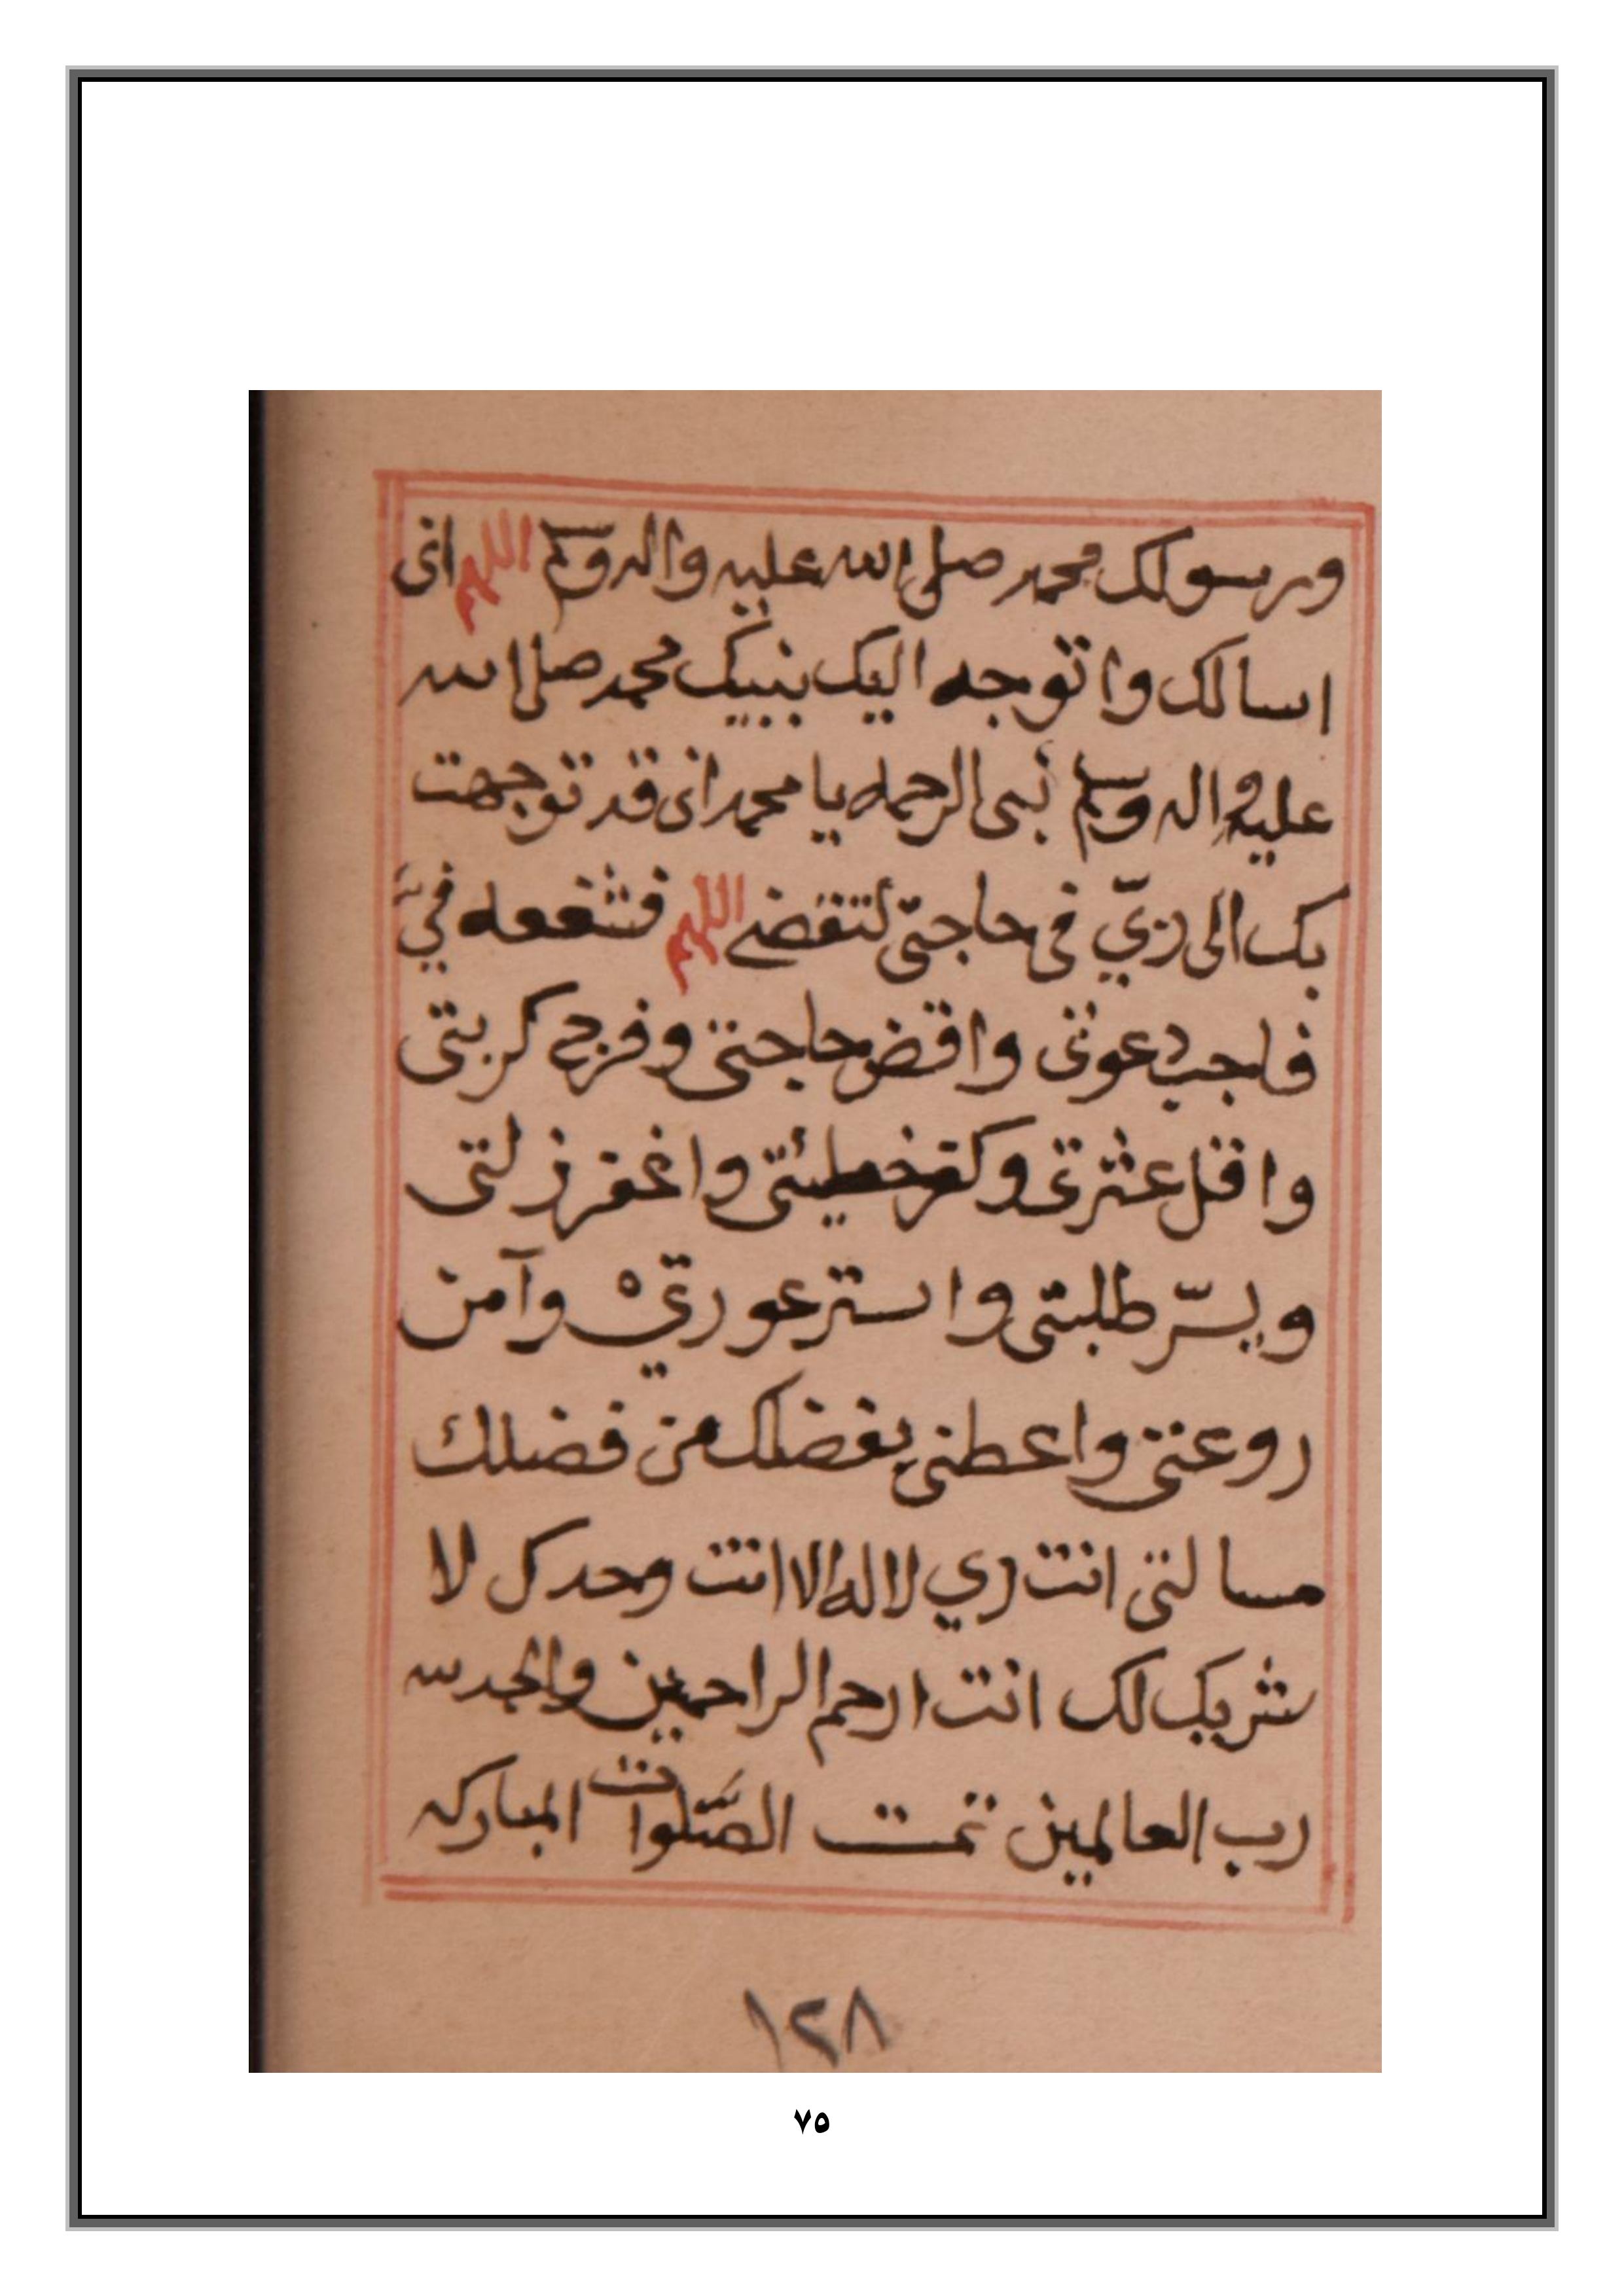 ورسولك محمد صلى الله عليه واله وسلم اللهم انى
اسالك واتوجه اليك بنبيك محمد صلى الله
عليه واله وسلم نبى الرحمه يا محمد انى قد توجهت
بك الى ربيّ فى حاجتى لتقضى اللهم فشفعه فيّ
فاجب دعوتى واقض حاجتى وفرج كربتى
واقل عثرتى وكفر خطيئتى واغفر زلتى
ويسّر طلبتى واستر عورتيْ وآمن
روعتى واعطنى بفضلك من فضلك
مسالتى انت ربي لا اله الا انت وحدك لا
شريك لك انت ارحم الراحمين والحمد لله
رب العالمين تمت الصَّلوات المباركه
١٢٨
٧٥